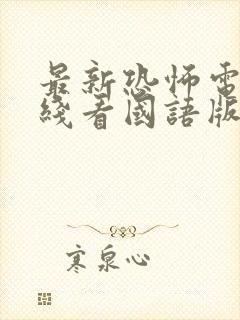 最新恐怖電
綫看國語版
寒泉心